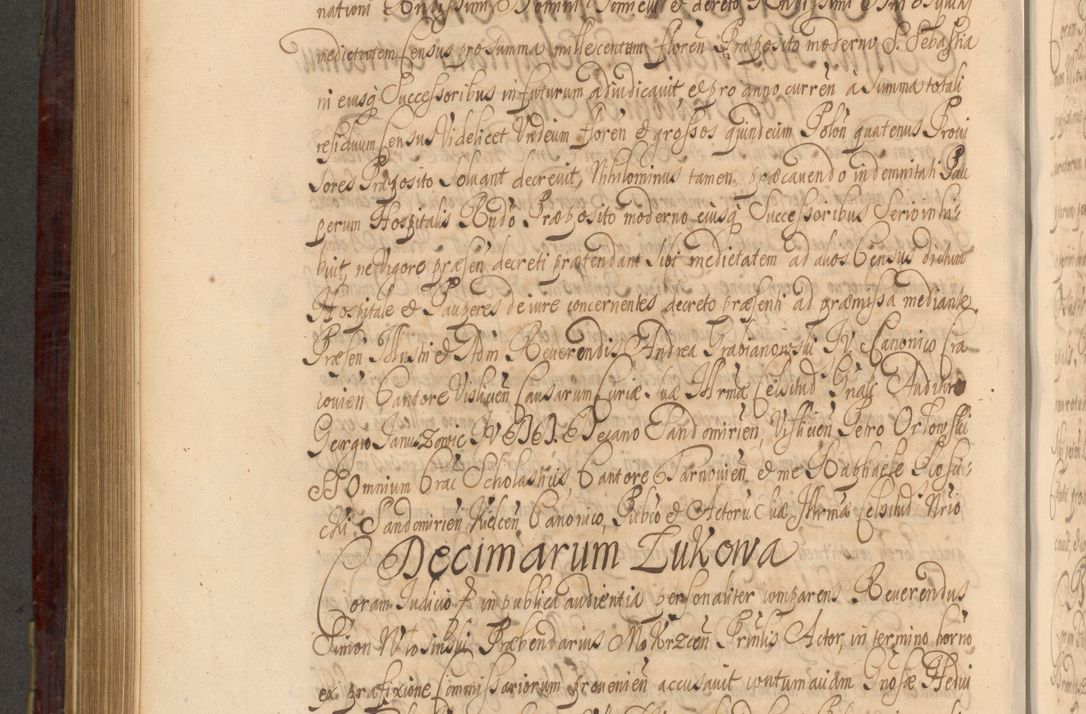 medietatem Census pro summa mille centum floren Præposito moderno S. Sebastia
ni eiusq Successoribus in futurum adiudicavit, et pro anno curren a summa totali
residuum Census Videlicet Undeum floren & grossos quindeum Polon quatenus Provi
sores Præposito solvant decrevit, Nihilominus tamen, præcavendo indemnitati Pau
perum Hospitalis Rndo Præposito moderno eiusq Successoribus Serio inhi-
buit, ne vigore præsen decreti prætendant sibi medietatem ad alios Census dictum
Hospitale & Pauperes de iure concernentes decreto præsenti ad præmissa mediante
Præsen Illustri & Adm Reverendis Andrea Grabianowski IV Canonico Cra
covien Cantore Vislicien Causarum Curiæ suæ Illrmæ Celsitud Gnali Auditore
Georgio Januszowic IV D Decano Sandomirien, Vislicien Petro Orłowski
SS Omnium Crac Scholastico, Cantore Tarnovien & me Raphaele
chi Sandomirien Kielcen Canonico, Publco & Actoru suæ Illrmæ Celsitud Nrio
Decimarum Łukowa
Coram Judicio & in publica audientia personaliter comparens Reverendus
Simon Præbendarius Mokrzcen Prinlis Actor, in termino horno
ex præfixione Commissariorum provenien accusavit contumaciam Gnosæ Hedvi